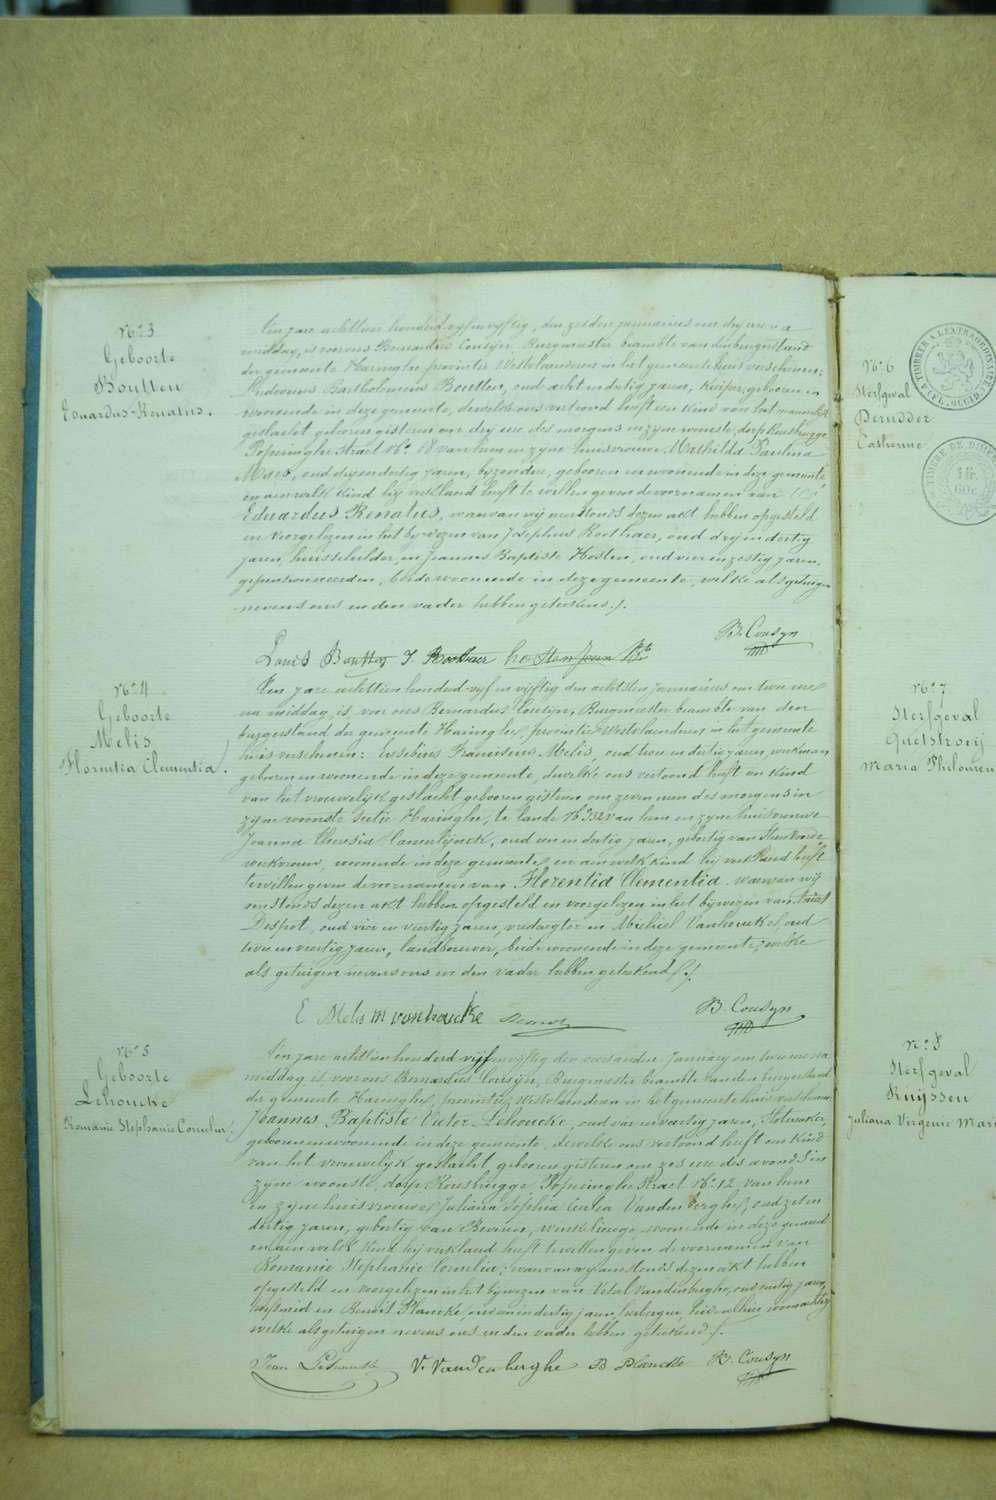 N.° 3
Geboorte
Boutten
Eduardus-Renatus.
Ten jare achttien honderd vyfenvyftig, den zesden januarius om dry uren na
middag, is voor ons Bernardus Cousijn, Burgmeester beambte van den burgerstand
der gemeente Haringhe, provintie Westvlaenderen in het gemeentehuis verschenen:
Ludovicus Bartholomeus Boutten, oud acht en dertig jaren, kuiper, geboren en
woonende in deze gemeente, dewelke ons vertoond heeft een kind van het mannelijk
geslacht geboren gisteren om dry ure des morgens in zyne woonste, dorp Rousbrugge
Poperinghe straet N.° 68 van hem en zyne huisvrouwe Mathilda Paulina
Maes, oud dry en dertig jaren, byzondere, geboren en woonende in deze gemeente
en aen welk kind hij verklaerd heeft te willen geven de voornamen van
Eduardus Renatus, waarvan wij aenstonds dezen akt hebben opgesteld
en voorgelezen in het bijwezen van Josephus Roothaer, oud dry en dertig
jaren, huisschilder, en Joannes Baptiste Hosten, oud vier en zestig jaren,
gepensionneerden, beide woonende in deze gemeente, welke als getuigen
nevens ons en den vader hebben geteekend./.
Louis Boutten J. Roothaer hosten Jean Bte B. Cousyn
N.° 4
Geboorte
Melis
Florentia Clementia.
Ten jare achttien honderd vyf en vyftig den achtsten Januarius om twee uren
na middag, is voor ons Bernardus Cousijn, Burgmeester beambte van den
burgerstand der gemeente Haringhe, provintie Westvlaenderen in het gemeente
huis verschenen: Eusebius Franciscus Melis, oud twee en dertig jaren, werkman
geboren en woonende in deze gemeente, dewelke ons vertoond heeft een kind
van het vrouwelijk geslacht geboren gisteren om zeven uren des morgens in
zyne woonste sectie Haringhe, te lande N.° 352 van hem en zyne huisvrouwe
Joanna Theresia Camerlijnck, oud een en dertig jaren, geboortig van Steenvoorde
werkvrouw, woonende in deze gemeente, en aen welk kind hij verklaerd heeft
te willen geven de voornamen van Florentia Clementia. waarvan wij
aenstonds dezen akt hebben opgesteld en voorgelezen in het bijwezen van
Despot, oud vier en veertig jaren, veldwagter en Michiel Vanhoucke, oud
twee en veertig jaren, landbouwer, beide woonende in deze gemeente, welke
als getuigen nevens ons en den vader hebben geteekend./.
E Melis m vanhoucke B. Cousyn
N.° 5
Geboorte
Lehoucke
Romanie Stephanie Cornelia.
Ten jare achttien honderd vijfenvyftig den Januarij om twee ure na
middag is voor ons Bernardus Cousijn, Burgmeester beambte van den burgerstand
der gemeente Haeringhe, provintie Westvlaendren in het gemeente huis verschenen:
Joannes Baptiste Victor Lehoucke, oud vier en veertig jaren,
geboren en woonende in deze gemeente, dewelke ons vertoond heeft een kind
van het vrouwelijk geslacht geboren gisteren om zes ure des avonds in
zyne woonste, dorp Rousbrugge Poperinghe straet N.° 12 van hem
en zyne huisvrouwe Juliana Sophia Vandenberghe, oud zes en
dertig jaren, geboortig van Beveren, woonende in deze gemeente
en aen welk kind hij verklaerd heeft te willen geven de voornamen van
Romanie Stephanie Cornelia; waarvan wij aenstonds dezen akt hebben
opgesteld en voorgelezen in het bijwezen van Vital Vandenberghe, oud jaren,
hoefsmid en Benoit Plancke, oud een en dertig jaren, herbergier, beide alhier woonachtig
welke als getuigen nevens ons en den vader hebben geteekend./.
Jean Lehoucke V. Vandenberghe B Plancke B. Cousyn
N.° 6
Sterfgeval
Derudder
Catherine
TIMBRE A L'EXTRAORDINAIRE
TIMBRE DE DIMENS
1 fr.
60c.
N.° 7
Sterfgeval
Quetstroeij
Maria Philomen
N.° 8
Sterfgeval
Ruijssen
Juliana Virginie Mari